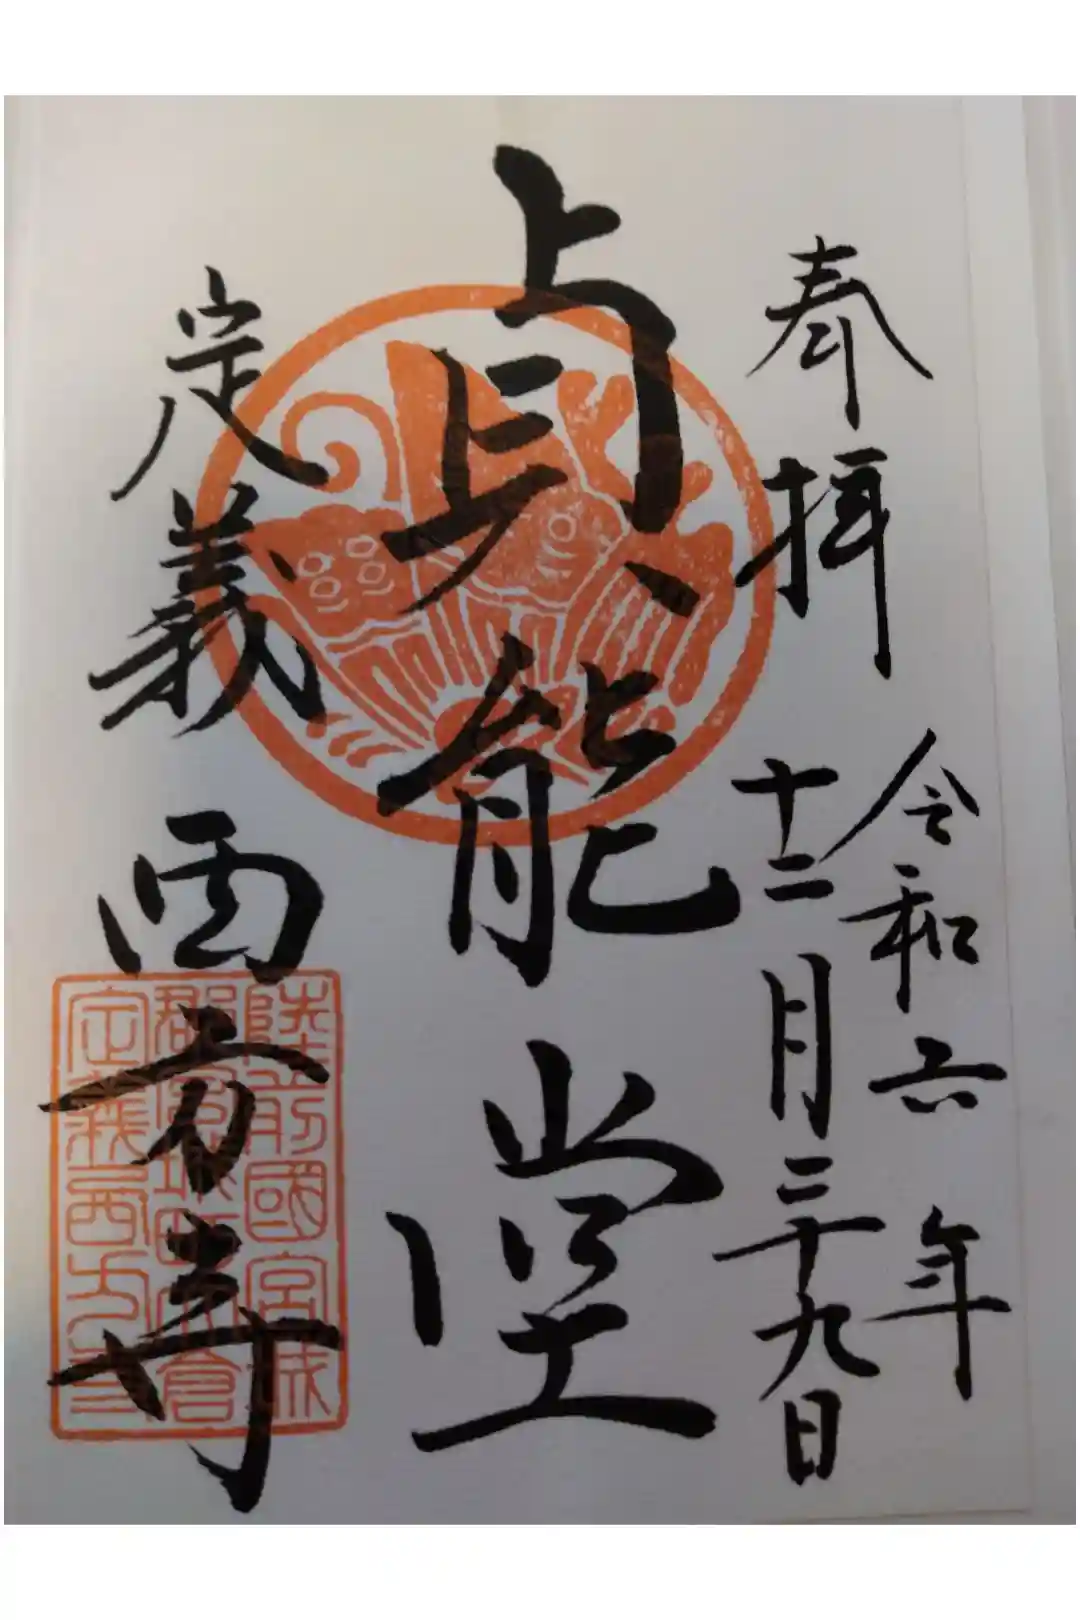 奉拝
令和六年
十二月二十九日
貞能堂
定義
西方寺
陸前國宮城
定義西方寺